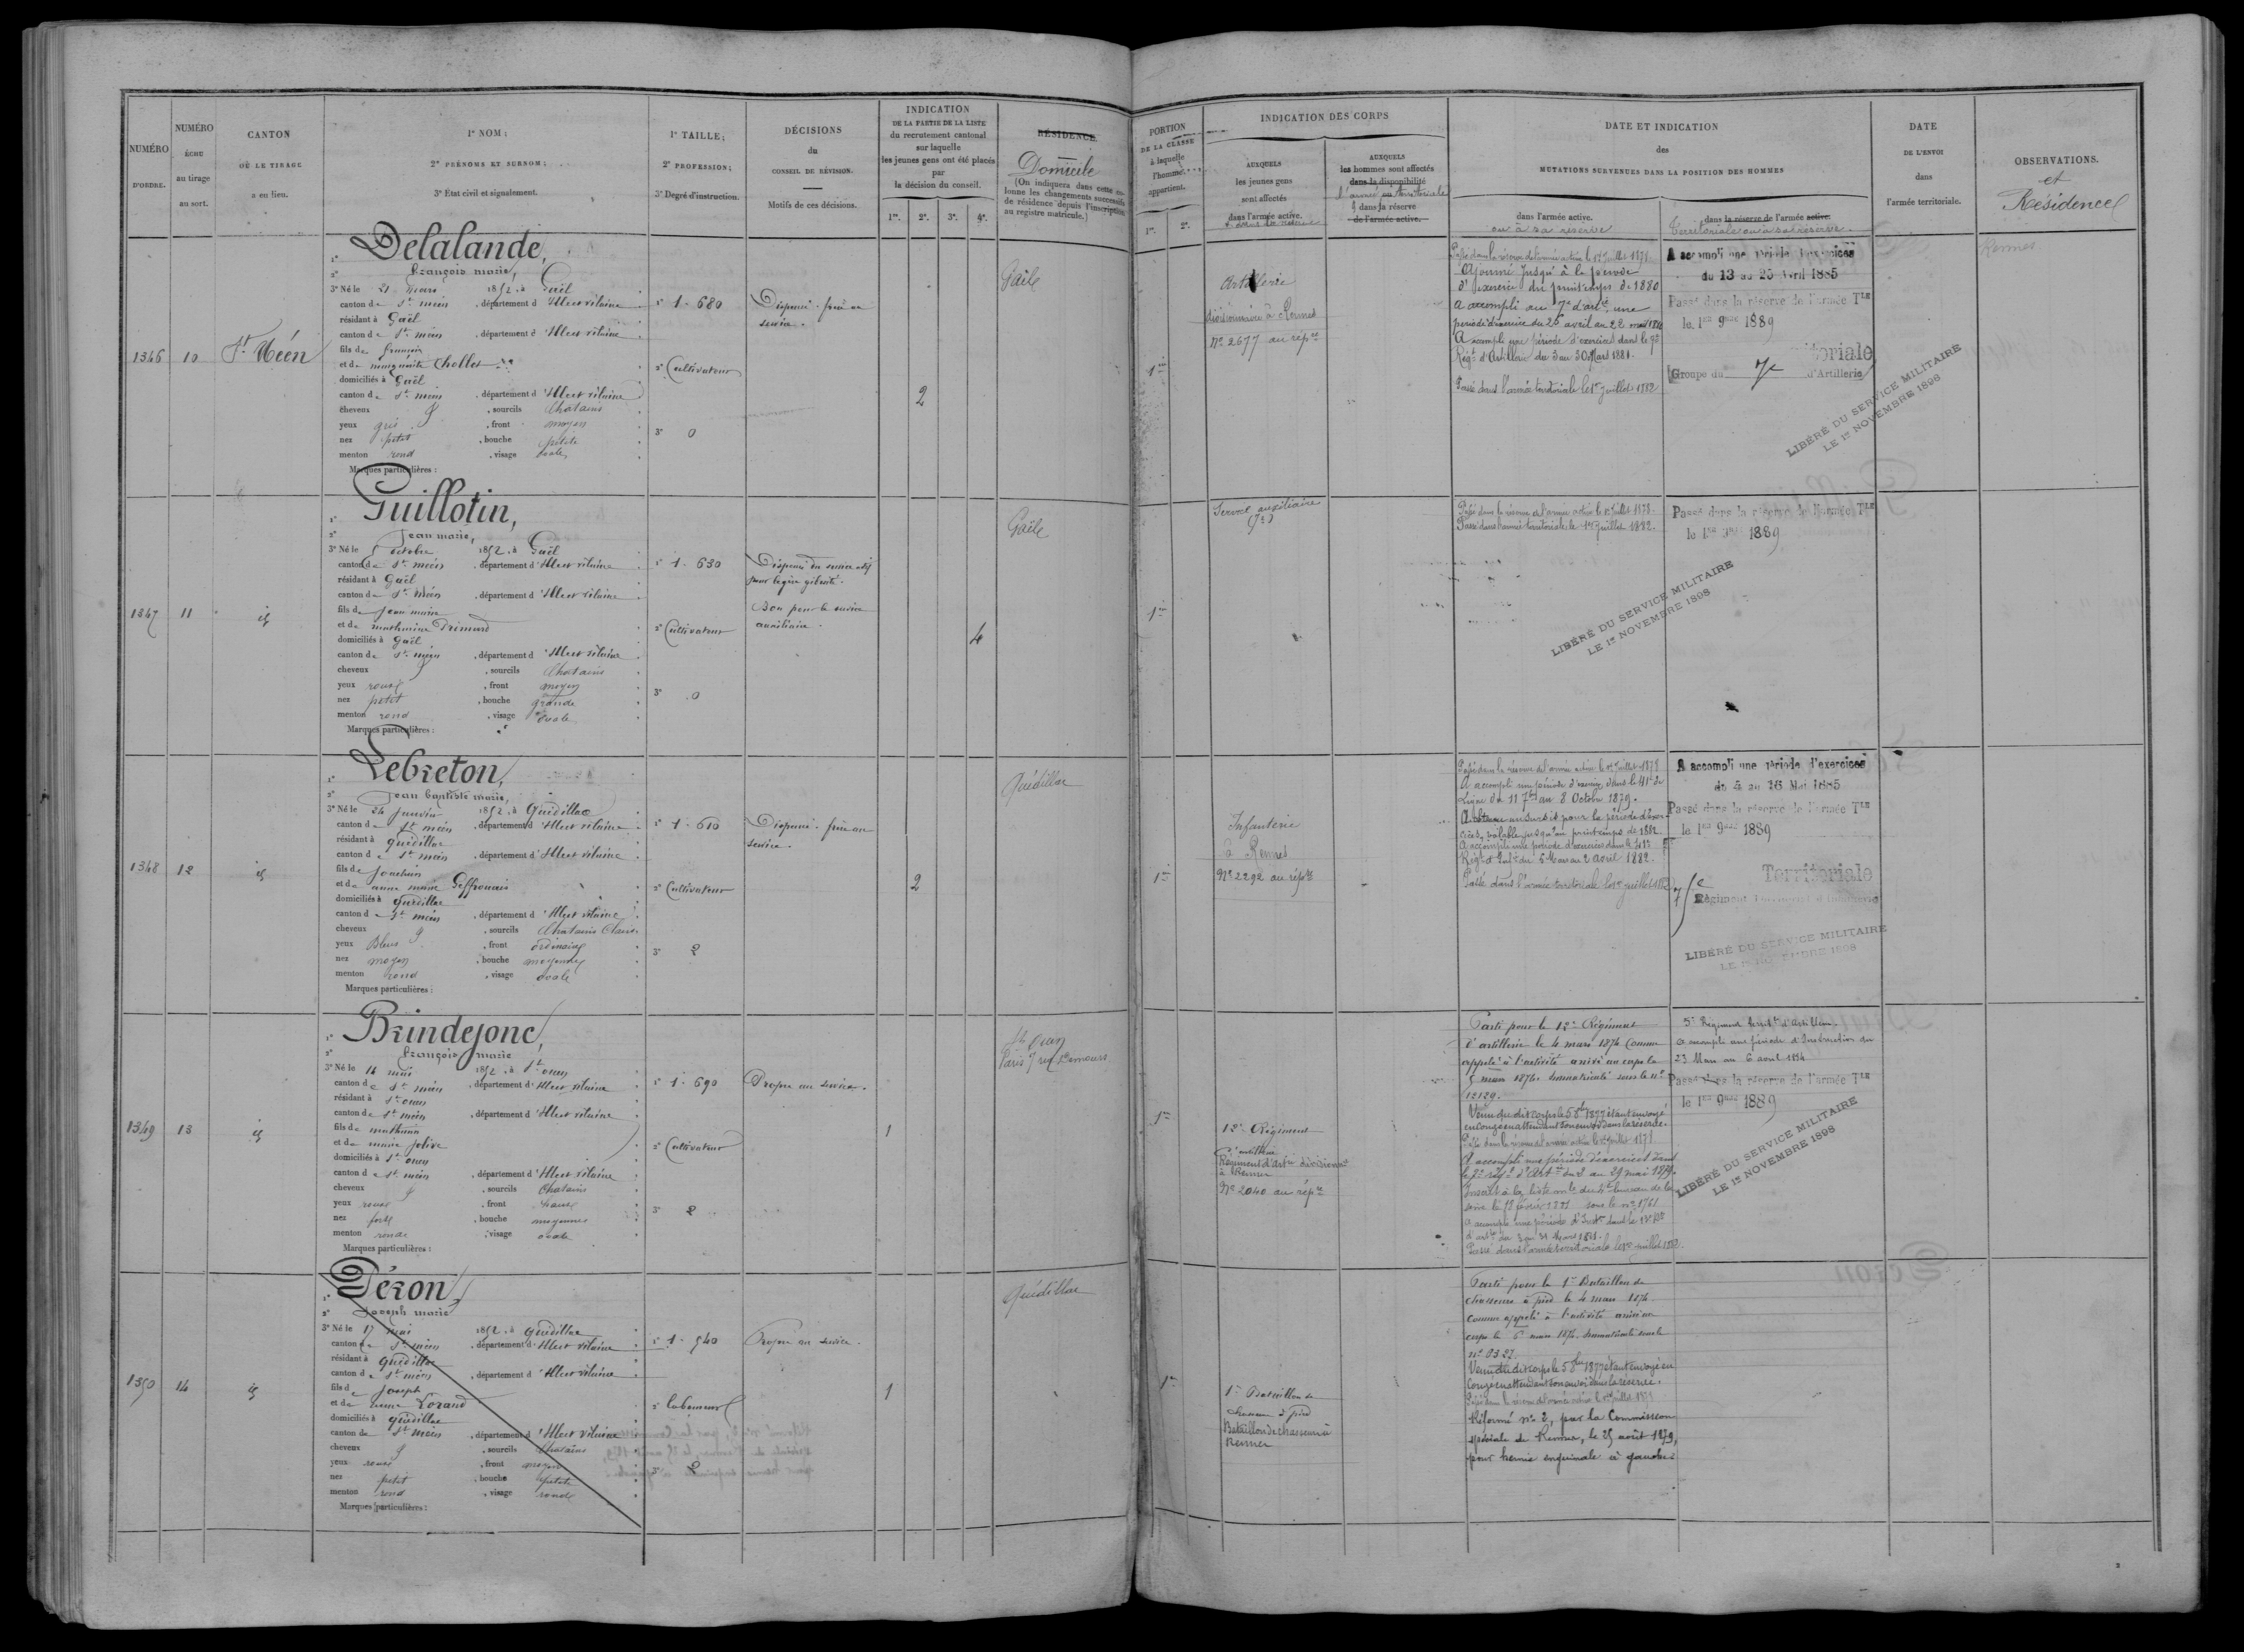 NUMÉRO
D'ORDRE.
NUMÉRO
ÉCHU
au tirage
au sort.
CANTON
OÙ LE TIRAGE
a eu lieu.
1° NOM;
2° PRÉNOMS ET SURNOM;
3° État civil et signalement.
1° TAILLE;
2° PROFESSION;
3° Degré d'instruction.
DÉCISIONS
du
CONSEIL DE RÉVISION.
Motifs de ces décisions.
INDICATION
DE LA PARTIE DE LA LISTE
du recrutement cantonal
sur laquelle
les jeunes gens ont été placés
par
la décision du conseil.
1re. 2e. 3e. 4e.
RÉSIDENCE
Domicile
(On indiquera dans cette co-
lonne les changements successifs
de résidence depuis l'inscription
au registre matricule.)
PORTION
DE LA CLASSE
à laquelle
l'homme
appartient.
1re. 2e.
INDICATION DES CORPS
AUXQUELS
les jeunes gens
sont affectés
dans l'armée active.
AUXQUELS
les hommes sont affectés
dans la disponibilité
l'armée territoriale
dans la réserve
de l'armée active.
DATE ET INDICATION
des
MUTATIONS SURVENUES DANS LA POSITION DES HOMMES
dans l'armée active.
ou à sa réserve
dans la réserve de l'armée active.
territoriale ou à sa réserve
DATE
DE L'ENVOI
dans
l'armée territoriale.
OBSERVATIONS.
et
Résidence
1346
10
St Méen
1° Delalande,
2° François marie,
3° Né le 21 mars 1852, à Gaël
canton de St méen, département d'Ille et vilaine
résidant à Gaël
canton de St méen, département d'Ille et vilaine
fils de François
et de marguerite Chollet
domiciliés à Gaël
canton de St méen, département d'Ille et vilaine
cheveux, sourcils Chatains
yeux gris, front moyen
nez petit, bouche petite
menton rond, visage ovale
Marques particulières :
1° 1. 680
2° Cultivateur
3° 0
Dispensé. frère au
service.
2
Gaël
1re
Artillerie
divisionnaire à Rennes
No 2677 au répre
Passé dans la réserve de l'armée active le 1er Juillet 1878
Ajourné jusqu'à la période
d'exercice du printemps de 1880
A accompli au 7e d'artie une
période d'exercice du 25 avril au 22 mai 1880
A accompli une période d'exercices dans le 7e
Régt d'Artillerie du 3 au 30 Mars 1881.
Passé dans l'armée territoriale le 1er Juillet 1882
A accompli une période d'exercices
du 13 au 25 Avril 1885
Passé dans la réserve de l'armée Tle
le 1er 9bre 1889
Territoriale
Groupe du 7e d'Artillerie
LIBÉRÉ DU SERVICE MILITAIRE
LE 1er NOVEMBRE 1898
Rennes
1347
11
id
1° Guillotin,
2° Jean marie,
3° Né le 5 octobre 1852, à Gaël
canton de St méen, département d'Ille et vilaine
résidant à Gaël
canton de St Méen, département d'Ille et vilaine
fils de Jean marie
et de mathurine
domiciliés à Gaël
canton de St méen, département d'Ille et vilaine
cheveux, sourcils Chatains
yeux roux, front moyen
nez petit, bouche grande
menton rond, visage ovale
Marques particulières :
1° 1. 630
2° Cultivateur
3° 0
Dispensé du service actif
pour légère gibosité.
Bon pour le service
auxiliaire.
4
Gaël
1re
Service auxiliaire
Passé dans la réserve de l'armée active le 1er Juillet 1878.
Passé dans l'armée territoriale le 1er Juillet 1882.
Passé dans la réserve de l'armée Tle
le 1er 9bre 1889
LIBÉRÉ DU SERVICE MILITAIRE
LE 1er NOVEMBRE 1898
1348
12
id
1° Lebreton,
2° Jean baptiste marie,
3° Né le 24 Janvier 1852, à Quédillac
canton de St méen, département d'Ille et vilaine
résidant à Quédillac
canton de St méen, département d'Ille et vilaine
fils de Joachim
et de anne marie Geffrouais
domiciliés à Quédillac
canton de St méen, département d'Ille et vilaine
cheveux, sourcils Chatains Clairs
yeux Bleus, front ordinaire
nez moyen, bouche moyenne
menton rond, visage ovale
Marques particulières :
1° 1. 610
2° Cultivateur
3° 2
Dispensé. frère au
service.
2
Quédillac
1re
Infanterie
à Rennes
No 2292 au répre
Passé dans la réserve de l'armée active le 1er Juillet 1878
A accompli une période d'exercices dans le 41e de
Ligne du 11 7bre au 8 Octobre 1879.
A obtenu un sursis pour la période d'exer-
cices, valable jusqu'au printemps de 1882
A accompli une période d'exercices dans le 41e
Régt d'Infie du 6 Mars au 2 Avril 1882.
Passé dans l'armée territoriale le 1er juillet 1882
A accompli une période d'exercices
du 4 au 16 Mai 1885
Passé dans la réserve de l'armée Tle
le 1er 9bre 1889
Territoriale
Régiment Territorial d'Infanterie
LIBÉRÉ DU SERVICE MILITAIRE
LE 1er NOVEMBRE 1898
1349
13
id
1° Brindejonc,
2° François marie
3° Né le 14 mai 1852, à St onen
canton de St méen, département d'Ille et vilaine
résidant à St onen
canton de St méen, département d'Ille et vilaine
fils de mathurin
et de marie jolive
domiciliés à St onen
canton de St méen, département d'Ille et vilaine
cheveux, sourcils Chatains
yeux roux, front haut
nez fort, bouche moyenne
menton rond, visage ovale
Marques particulières :
1° 1. 690
2° Cultivateur
3° 2
Propre au service.
1
St Onen
Paris 7 rue
1re
12e Régiment
d'artillerie
Régiment d'Artie divisionre
à Rennes
No 2040 au répre
Parti pour le 12e Régiment
d'artillerie le 4 mars 1874 Comme
appelé à l'activité arrivé au corps le
5 mars 1874. Immatriculé sous le no
12129.
Venu du dit corps le 5 8bre 1877 étant envoyé
en congé en attendant son envoi dans la réserve.
Passé dans la réserve de l'armée active le 1er Juillet 1878
A accompli une période d'exercices dans
le 7e régt d'Artie du 2 au 29 mai 1879.
Inscrit à la liste du 4e bureau de la
Seine le 18 février 1881 sous le no 1761
A accompli une période d'Instn dans le
d'artie du 3 au 31 Mars 1881.
Passé dans l'armée territoriale le 1er juillet 1882.
5e Régiment territal d'Artillerie.
A accompli une période d'Instruction du
23 Mars au 6 avril 1884
Passé dans la réserve de l'armée Tle
le 1er 9bre 1889
LIBÉRÉ DU SERVICE MILITAIRE
LE 1er NOVEMBRE 1898
1350
14
id
1° Déron,
2° Joseph marie
3° Né le 17 mai 1852, à Quédillac
canton de St méen, département d'Ille et vilaine
résidant à Quédillac
canton de St méen, département d'Ille et vilaine
fils de Joseph
et de anne Lorand
domiciliés à Quédillac
canton de St méen, département d'Ille et vilaine
cheveux, sourcils Chatains
yeux roux, front moyen
nez petit, bouche petite
menton rond, visage ronde
Marques particulières :
1° 1. 540
2° laboureur
3° 2
Propre au service.
1
Quédillac
1re
1er Bataillon de
chasseurs à pied
Bataillon de chasseurs à
Rennes
Parti pour le 1er Bataillon de
chasseurs à pied le 4 mars 1874
comme appelé à l'activité arrivé au
corps le 6 mars 1874. Immatriculé sous le
no 3327.
Venu du dit corps le 5 8bre 1877 étant envoyé en
Congé en attendant son envoi dans la réserve.
Passé dans la réserve de l'armée active le 1er Juillet 1878
Réformé no 2, par la Commission
spéciale de Rennes, le 25 août 1879,
pour hernie inguinale à gauche.